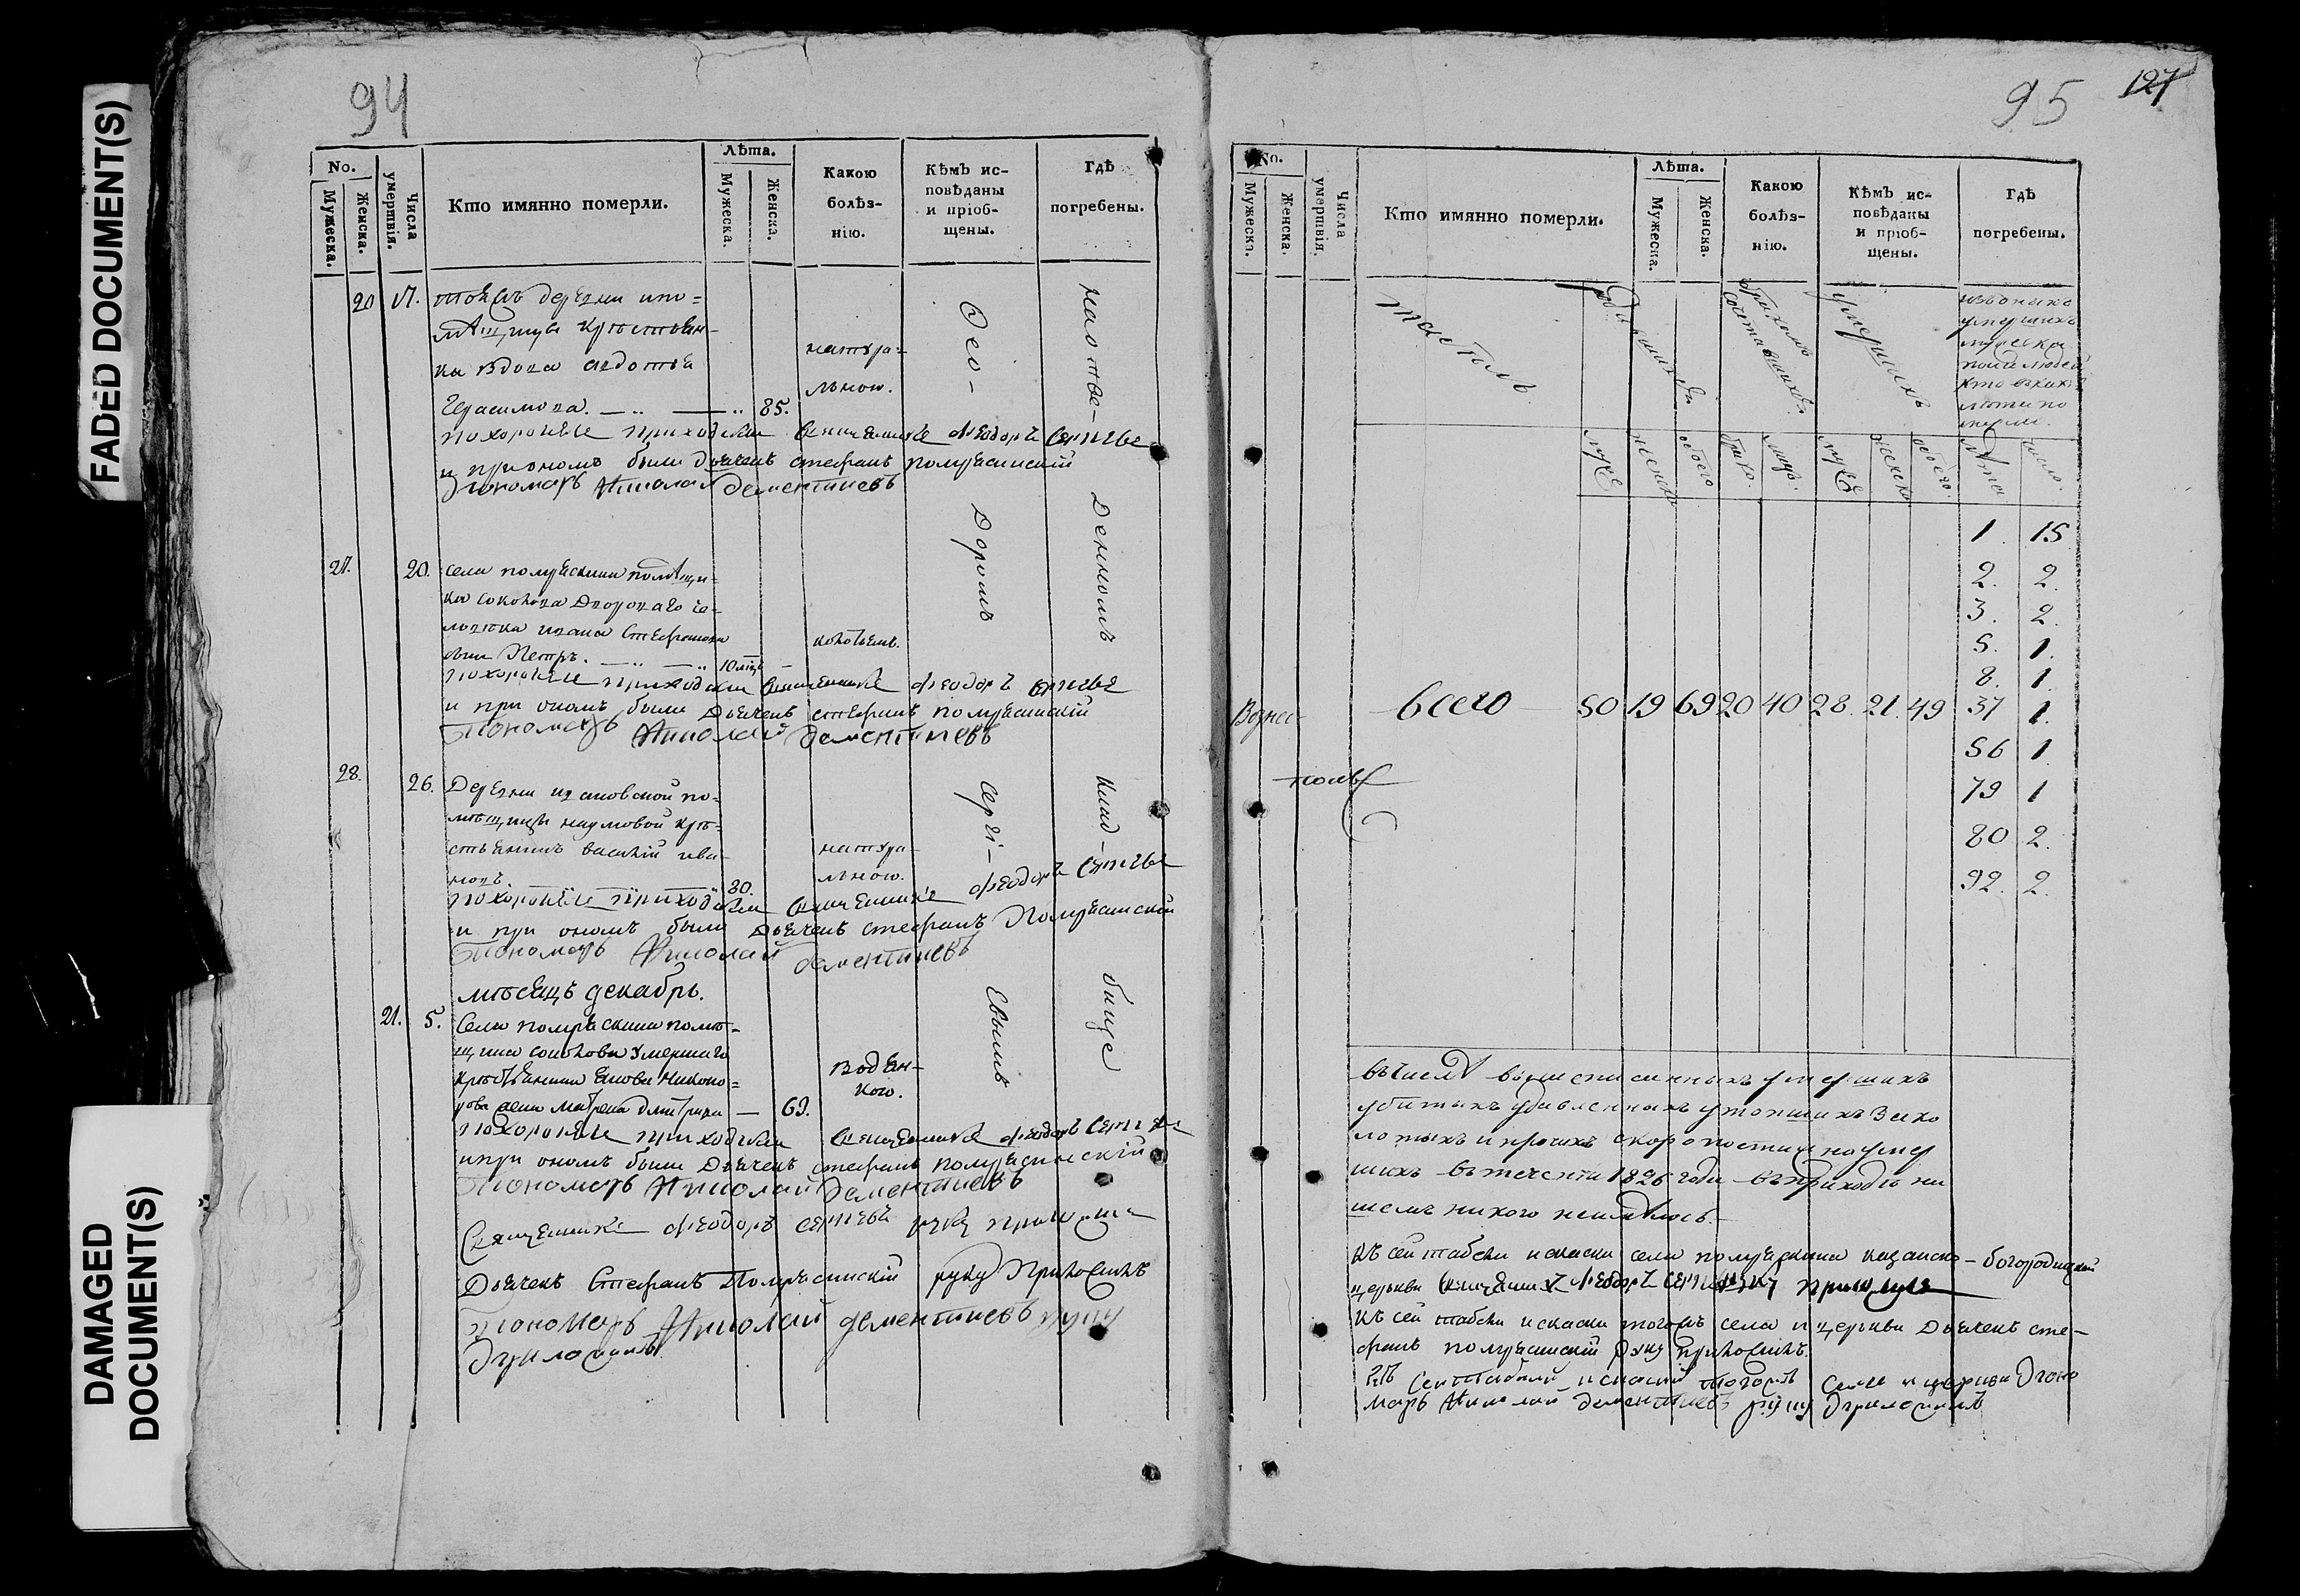 FADED DOCUMENT(S)
DAMAGED
DOCUMENT(S)
94
No.
Мужеска.
Женска.
Числа
умертвія.
Кто имянно померли.
Лѣта.
Мужеска.
Женска.
Какою
болѣз-
нію.
Кѣмъ ис-
повѣданы
и пріоб-
щены.
Гдѣ
погребены.
20 17. тоежъ деревни
крестьян-
ка вдова авдотья
Герасимова. 85.
натура-
льною.
Фео-
на отве-
похоронены приходским священникъ феодоръ сергѣе
и при ономъ были дьячекъ стефанъ помряскинскій
пономарь Николай дементиевъ
доромъ
денномъ
27. 20. села помряскина помѣщи-
ка соколова двороваго че-
ловѣка ивана Стефанова
сынъ Петръ. 10 мцъ
похоронены приходским священникъ феодоръ сергѣе
и при ономъ были дьячекъ стефанъ помряскинскій
Пономарь Николай дементиевъ
28. 26. Деревни ивановской по-
мѣщицы наумовой кре-
стьянинъ василій ива-
новъ. 80.
натура-
льною.
Сергі-
клад-
похоронены приходским священникъ феодоръ сергѣе
и при ономъ были дьячекъ стефанъ Помряскинскій
Пономарь Николай дементиевъ
мѣсяцъ декабрь.
21. 5. Села помряскина помѣ-
щика соколова умершаго
крестьянина
жена Матрена 69.
водян-
кою.
евымъ
бище
похоронены приходским священникъ феодоръ сергѣе
и при ономъ были дьячекъ стефанъ помряскинскій
Пономарь Николай дементиевъ
Священникъ феодоръ сергѣевъ руку приложилъ
Дьячекъ Стефанъ Помряскинскій руку Приложилъ
Пономарь Николай дементиевъ руку
Приложилъ
95 127
No.
Мужеска.
Женска.
Числа
умертвія.
Кто имянно померли.
Лѣта.
Мужеска.
Женска.
Какою
болѣз-
нію.
Кѣмъ ис-
повѣданы
и пріоб-
щены.
Гдѣ
погребены.
табель
родившихся
бракомъ
сочетавшихся
умершихъ
изъ онаго
умершихъ
мужеска
пола людей
кто въ какихъ
лѣтахъ по
мерли.
муже
женска
обоего
браков.
муже
женска
обоего.
лѣта
число.
1. 15
2. 2.
3. 2.
5. 1.
8. 1.
всего 50 19 69 20 40 28. 21. 49 37 1.
56 1
79 1
80 2.
92. 2.
въ числѣ вышеписанныхъ умершихъ
убитыхъ удавленныхъ утопшихъ зако
лотыхъ и прочихъ скоропостижно умер
шихъ въ теченіи 1826 года въ приходѣ на
шемъ никого неимѣлось.
Къ сей табели и скаски села помряскина казанско-богородицкой
церкви священникъ феодоръ сергѣевъ руку приложилъ
Къ сей табели и скаски тогожъ села и церкви дьячекъ сте-
фанъ помряскинскій руку приложилъ.
Къ сей табели и скаски тогожъ села и церкви Поно
марь Николай дементиевъ руку Приложилъ